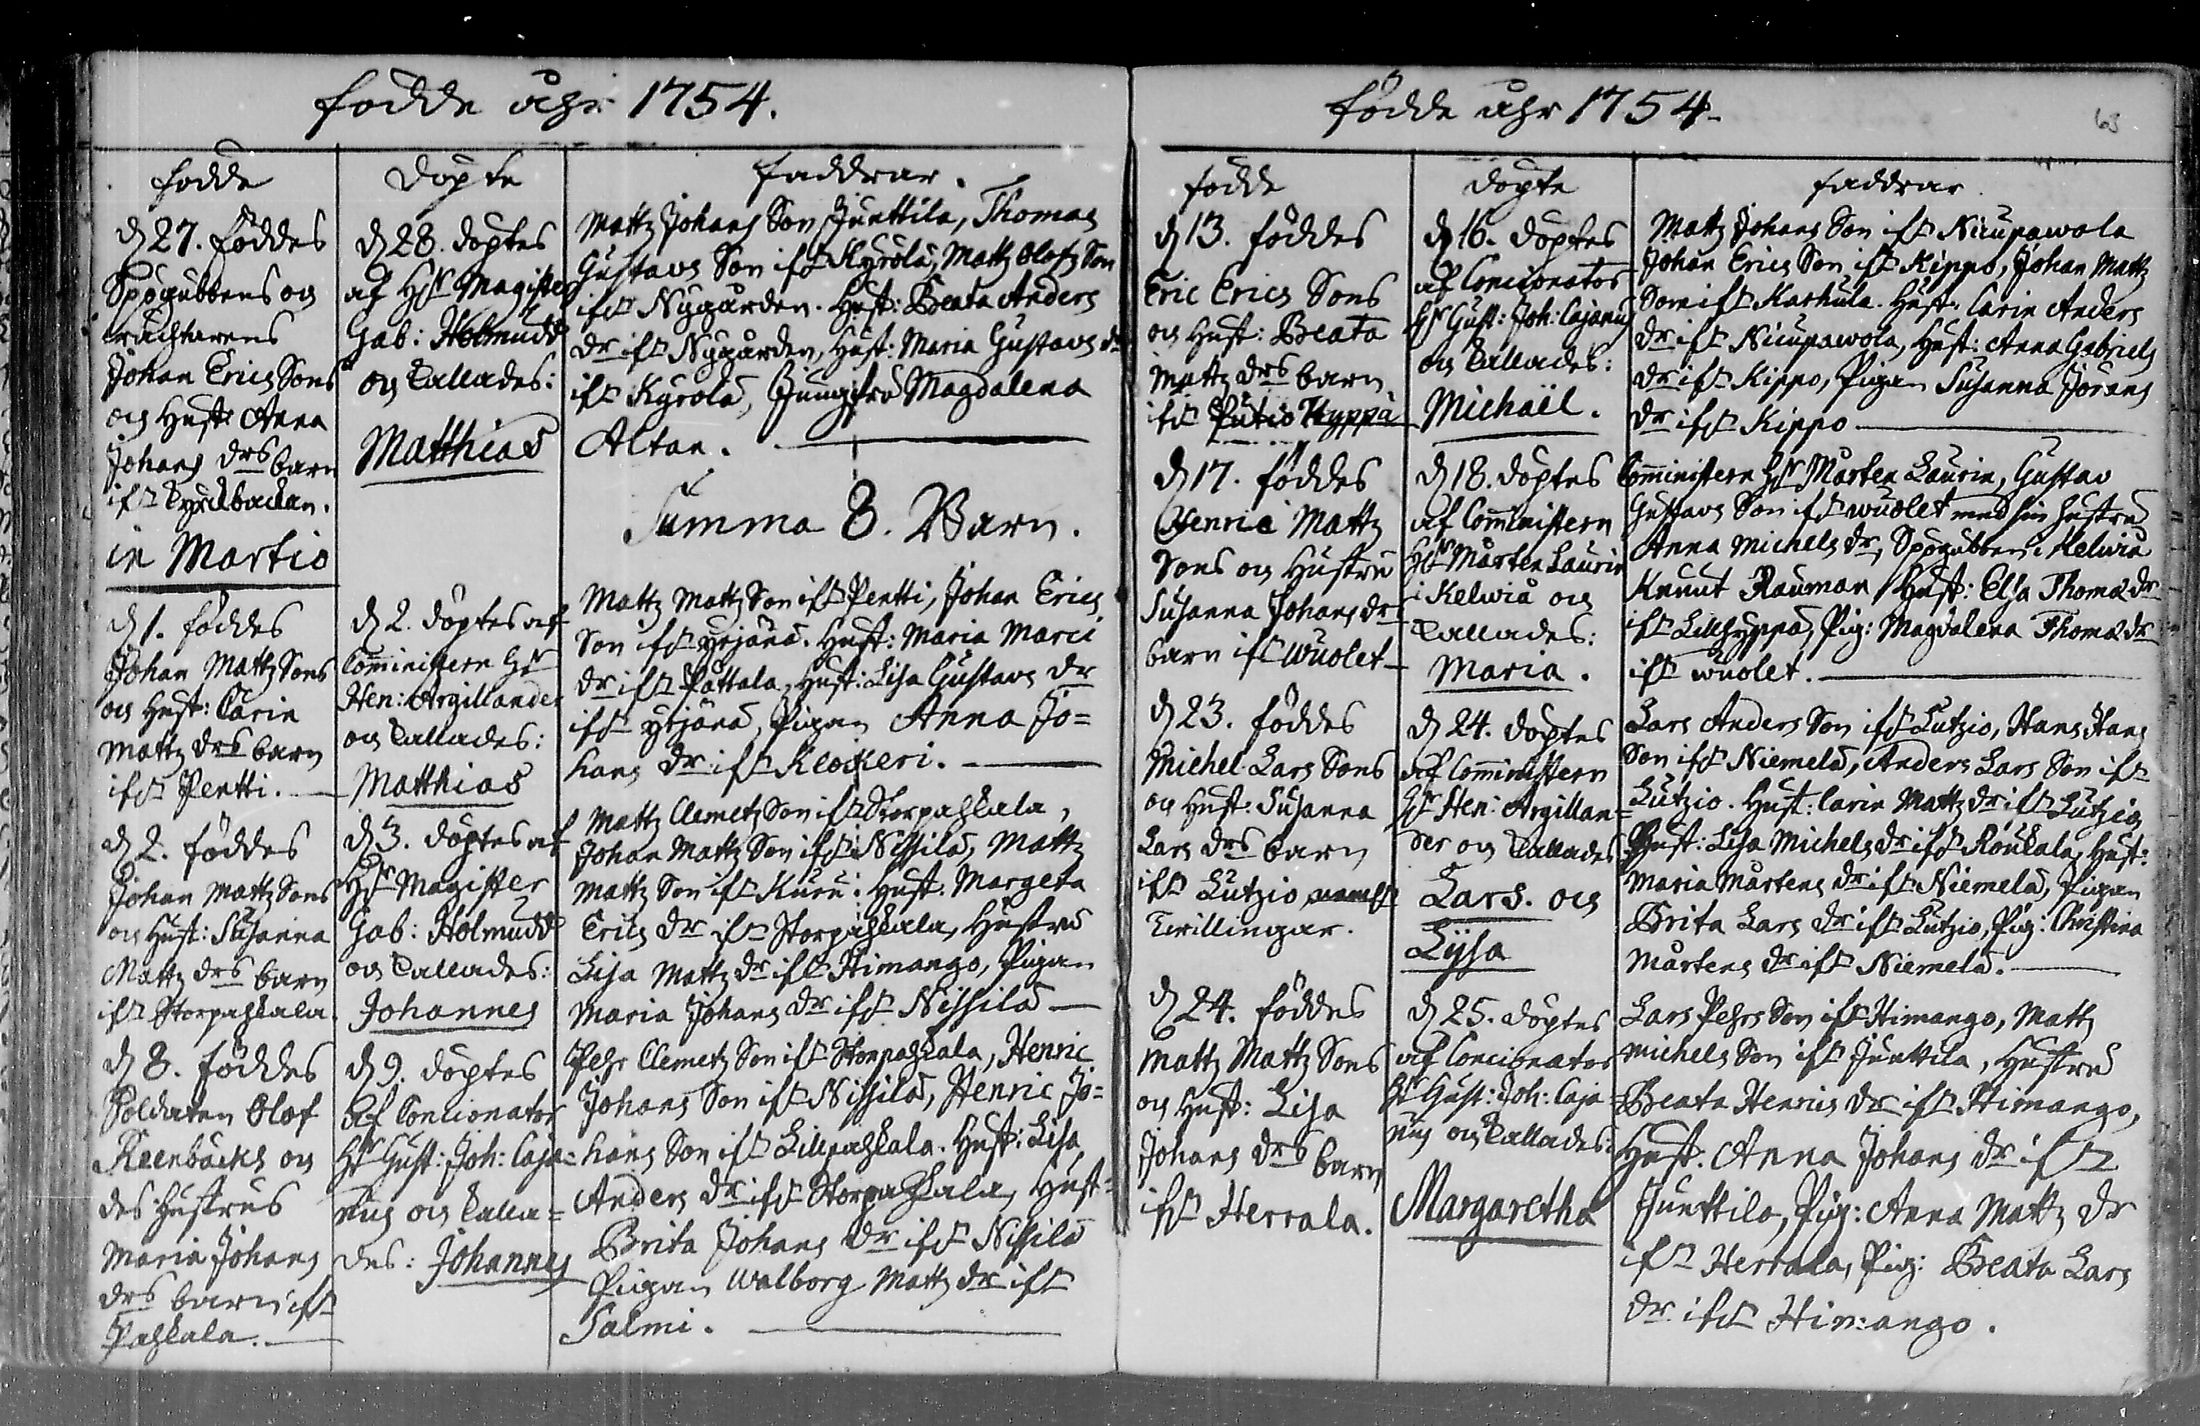 födde åhr 1754.
födde
döpte
faddrar.
d 27. föddes
Spögubbens og
tracktarens
Johan Erics Sons
og Hust: Anna
Johans drs barn
ifr Kyrckbackan.
d 28. döptes
af Hr Magister
Gab: Holmudd
og Kallades:
Matthias
Mattz Johans Son Junttila, Thomas
Gustavs Son ifr Kyrola, Mattz Olofz Son
ifr Nygården. Hust: Beata Anders
dr ifr Nygården, Hust: Maria Gustavs dr
ifr Kyrola, Jungfru Magdalena
Altan.
Summa 8. Barn.
in Martio
d 1. föddes
Johan Mattz Sons
og Hust: Carin
Mattz drs barn
ifr Pentti.
d 2. döptes af
Comministern Hr
Hen: Argillander
og Kallades:
Matthias
Mattz Mattz Son ifr Pentti, Johan Erics
Son ifr yrjänä. Hust: Maria Marci
dr ifr Pättala, Hust: Lisa Gustavs dr
ifr yrjänä, Pigan Anna Jo=
hans dr ifr Klockeri.
d 2. föddes
Johan Mattz Sons
og Hust: Susanna
Mattz drs barn
ifr Storpahkala
d 3. döptes af
Hr Magister
Gab: Holmudd
og Kallades:
Johannes
Mattz Clemetz Son ifr Storpahkala,
Johan Mattz Son ifr Nissilä, Mattz
Mattz Son ifr Kuru: Hust: Margeta
Erics dr ifr Storpahkala, Hustru
Lisa Mattz dr ifr Himango, Pigan
Maria Johans dr ifr Nissilä
d 8. föddes
Soldaten Olof
Reenbäcks og
des Hustrus
Maria Johans
drs barn ifr
Pahkala.
d 9. döptes
af Concionator
Hr Gust: Joh: Caja=
nus og Kalla=
des: Johannes
Pehr Clemetz Son ifr Storpahkala, Henric
Johans Son ifr Nissilä, Henric Jo=
hans Son ifr Lillpahkala. Hust: Lisa
Anders dr ifr Storpahkala, Hust:
Brita Johans dr ifr Nissilä
Pigan Walborg Mattz dr ifr
Salmi.
födde åhr 1754.
63
födde
döpte
faddrar
d 13. föddes
Eric Erics Sons
og Hust: Beata
Mattz drs barn
ifr Putio Hyppä
d 16. döptes
af Concionator
Hr Gust: Joh: Cajanus
og Kallades:
Michaël.
Mattz Johans Son ifr Niunpawola
Johan Erics Son ifr Kippo, Johan Mattz
Son ifr Karhula. Hust: Carin Anders
dr ifr Niunpawola, Hust: Anna Gabriels
dr ifr Kippo, Pigan Susanna Jörans
dr ifr Kippo
d 17. föddes
Henric Mattz
Sons og Hustru
Susanna Johans dr
barn ifr Wuolet
d 18. döptes
af Comministern
Hr Mårten Laurin
i Kelwiå og
Kallades:
Maria.
Comministern Hr Mårten Laurin, Gustav
Gustavs Son ifr Wuolet med sin hustru
Anna Michels dr, Spögubben i Kelwiå
Knut Rauman, Hust: Elsa Thomæ dr
ifr Lillhyppä, Pig: Magdalena Thomæ dr
ifr Wuolet.
d 23. föddes
Michel Lars Sons
og Hust: Susanna
Lars drs barn
ifr Lutzio
Twillingar.
d 24. döptes
af Comministern
Hr Hen: Argillan=
der og Kallades
Lars. og
Lysa
Lars Anders Son ifr Lutzio, Hans Hans
Son ifr Niemelä, Anders Lars Son ifr
Lutzio. Hust: Carin Mattz dr ifr Lutzio,
Hust: Lisa Michels dr ifr Roukala, Hust:
Maria Mårtens dr ifr Niemelä, Pigan
Brita Lars dr ifr Lutzio, Pig: Christina
Mårtens dr ifr Niemelä.
d 24. föddes
Mattz Mattz Sons
og Hust: Lisa
Johans drs barn
ifr Herrala.
d 25. döptes
af Concionator
Hr Gust: Joh: Caja=
nus og Kallades:
Margaretha
Lars Pehrs Son ifr Himango, Mattz
Michels Son ifr Junttila, Hustru
Beata Henrics dr ifr Himango,
Hust. Anna Johans dr ifr
Junttila, Pig: Anna Mattz dr
ifr Herrala, Pig: Beata Lars
dr ifr Himango.